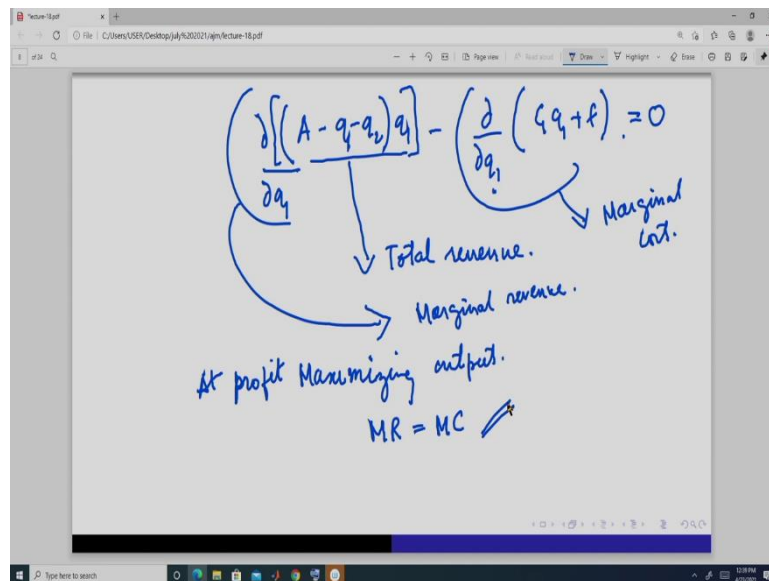 *lecture-18.pdf
File | C:/Users/USER/Desktop/july%202021/ajm/lecture-18.pdf
of 24
Page view
Read aloud
Draw
Highlight
Erase
∂/∂q₁ [(A - q₁ - q₂) q₁] - ∂/∂q₁ (c₁q₁ + f) = 0
Marginal
cost.
Total revenue.
Marginal revenue.
At profit Maximizing output.
MR = MC
Type here to search
12:09 PM